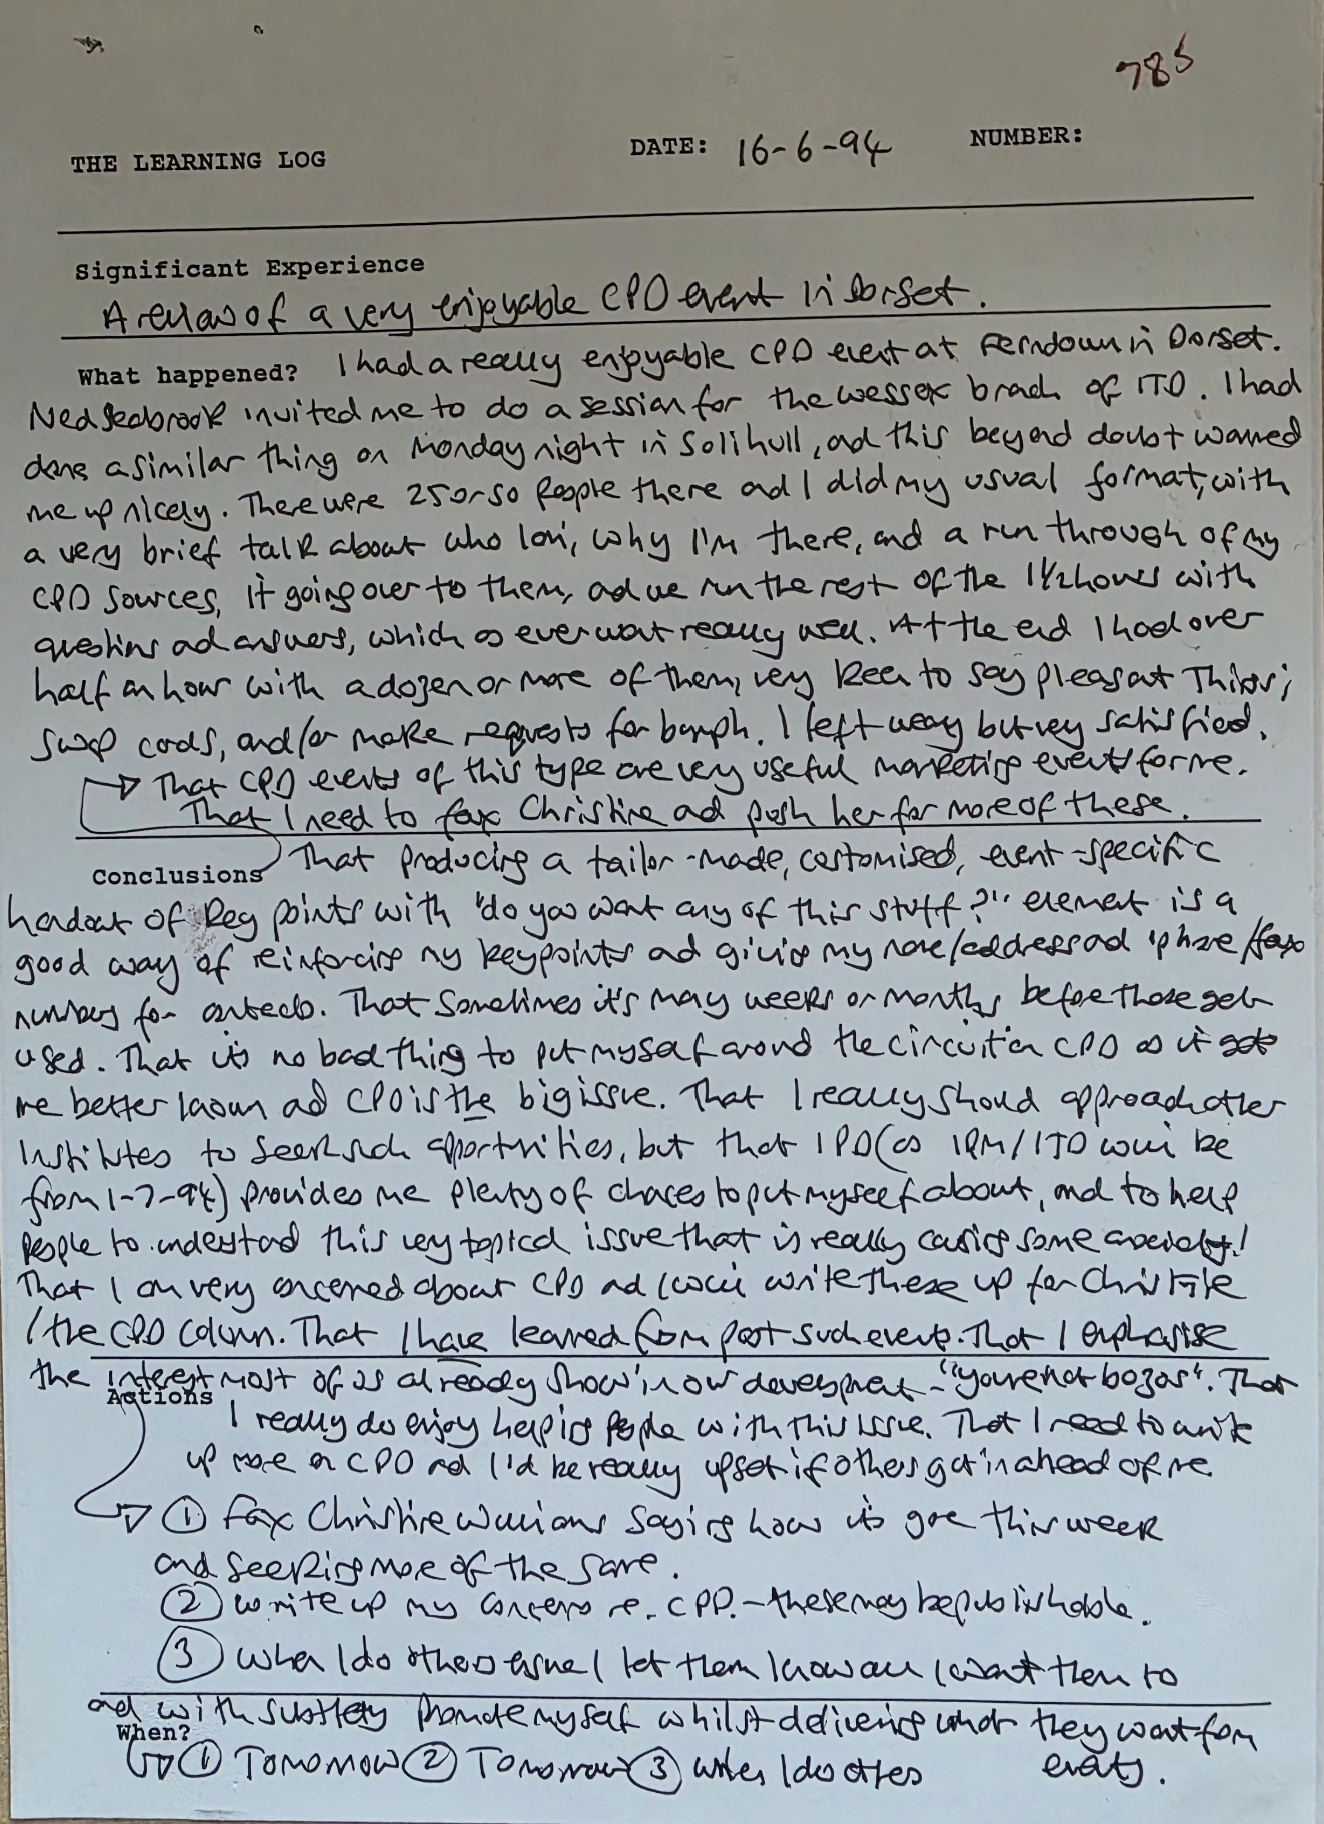 785
THE LEARNING LOG DATE: 16-6-94 NUMBER:
Significant Experience
A review of a very enjoyable CPD event in Dorset.
What happened? I had a really enjoyable CPD event at Ferndown in Dorset.
Ned Seabrook invited me to do a session for the Wessex branch of ITD. I had
done a similar thing on Monday night in Solihull, and this beyond doubt warmed
me up nicely. There were 25 or so people there and I did my usual format, with
a very brief talk about who I am, why I'm there, and a run through of my
CPD sources, it going over to them, and we run the rest of the 1½ hours with
questions and answers, which as ever went really well. At the end I had over
half an hour with a dozen or more of them, very keen to say pleasant things,
swap cards, and/or make requests for bumph. I left weary but very satisfied.
That CPD events of this type are very useful marketing events for me.
That I need to fax Christine and push her for more of these.
Conclusions That producing a tailor-made, customised, event-specific
handout of key points with "do you want any of this stuff?" element is a
good way of reinforcing my keypoints and giving my name/address and 'phone/fax
numbers for contacts. That sometimes it's many weeks or months before those get
used. That it's no bad thing to put myself around the circuit on CPD as it gets
me better known and CPD is the big issue. That I really should approach other
Institutes to seek such opportunities, but that IPD (as IPM/ITD will be
from 1-7-94) provides me plenty of chances to put myself about, and to help
people to understand this very topical issue that is really causing some anxiety!
That I am very concerned about CPD and I will write these up for Christine
/the CPD column. That I have learned from past such events. That I emphasise
the interest most of us already show in our development - "you're not bozos". That
Actions I really do enjoy helping people with this issue. That I need to write
up more on CPD and I'd be really upset if others got in ahead of me.
① Fax Christine Williams saying how it's gone this week
and seeking more of the same.
② Write up my concerns re. CPD. - these may be publishable.
③ When I do others ensure I let them know all I want them to
and with subtlety promote myself whilst delivering what they want from
When? events.
① Tomorrow ② Tomorrow ③ When I do others